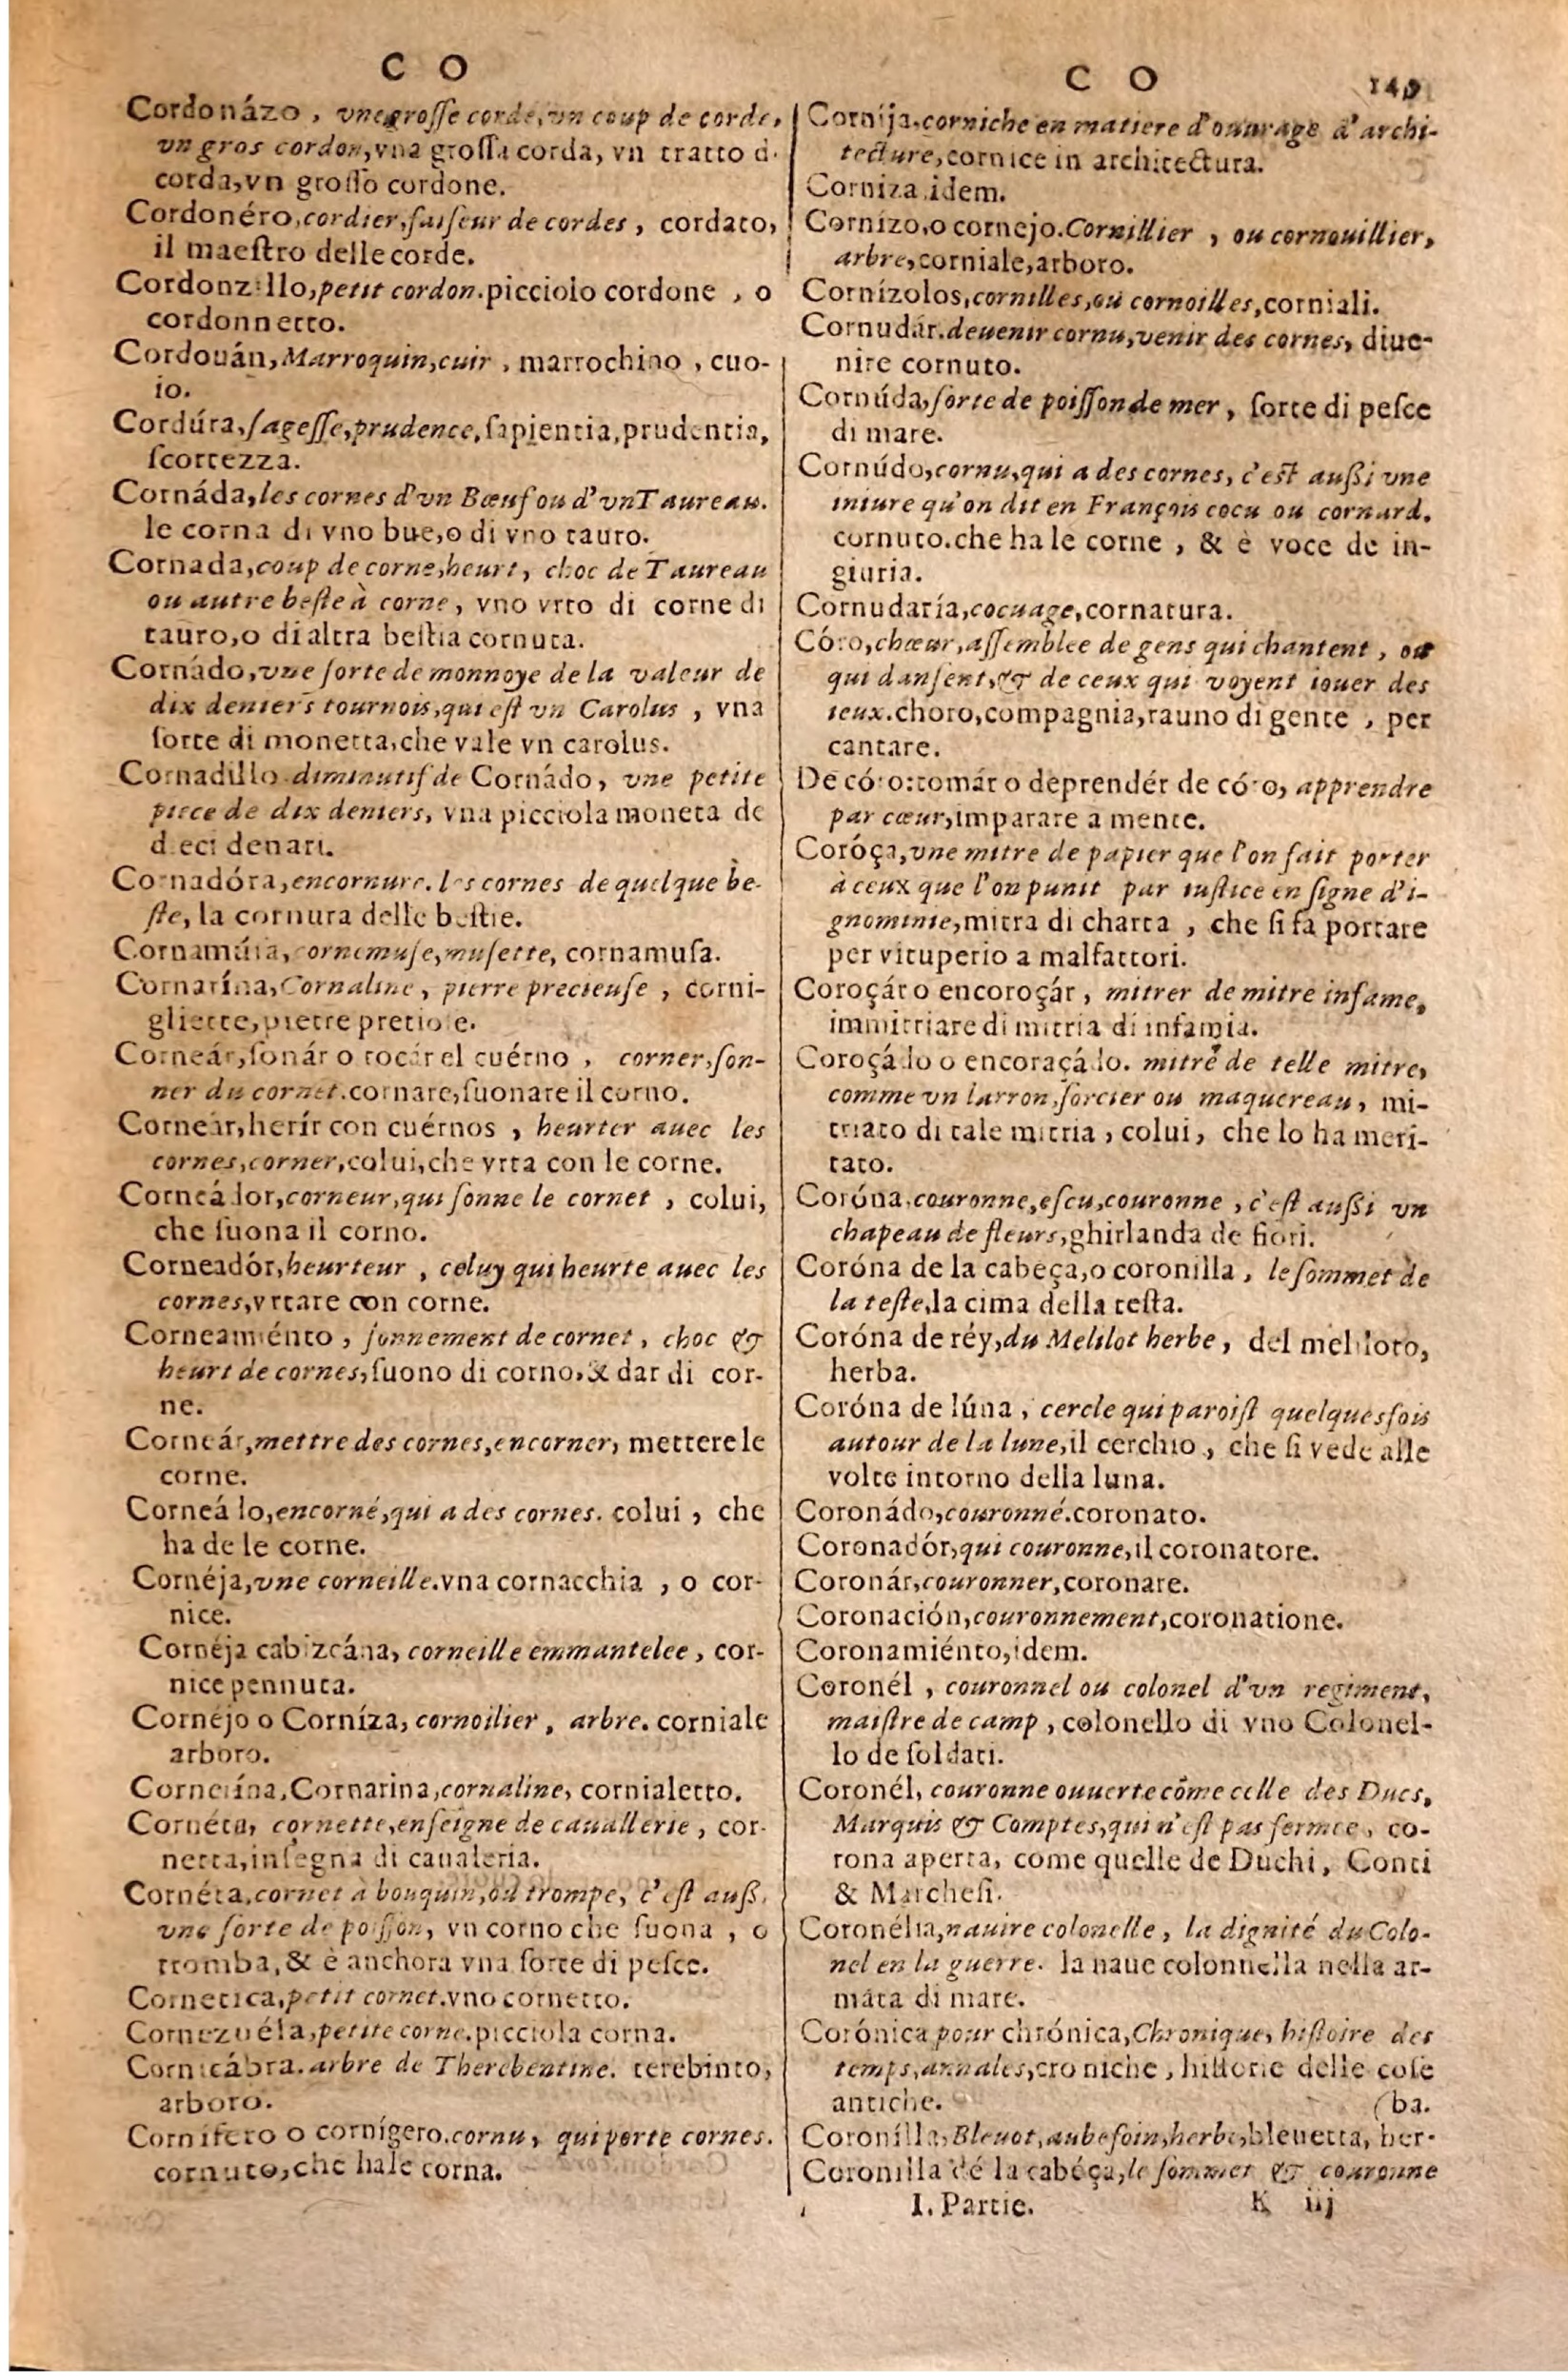 C O
Cordonázo, vne grosse corde, vn coup de corde,
vn gros cordon, vna grossa corda, vn tratto d.
corda, vn grosso cordone.
Cordonéro, cordier, faiseur de cordes, cordato,
il maestro delle corde.
Cordonzillo, petit cordon. picciolo cordone, o
cordonnetto.
Cordouán, Marroquin, cuir, marrochino, cuo-
io.
Cordúra, sagesse, prudence, sapientia, prudentia,
scortezza.
Cornáda, les cornes d'vn Bœuf ou d'vn Taureau.
le corna di vno bue, o di vno tauro.
Cornada, coup de corne, heurt, choc de Taureau
ou autre beste à corne, vno vrto di corne di
tauro, o di altra bestia cornuta.
Cornádo, vne sorte de monnoye de la valeur de
dix deniers tournois, qui est vn Carolus, vna
sorte di monetta, che vale vn carolus.
Cornadillo diminutif de Cornádo, vne petite
piece de dix deniers, vna picciola moneta de
dieci denari.
Cornadóra, encornure. les cornes de quelque be-
ste, la cornura delle bestie.
Cornamúsa, cornemuse, musette, cornamusa.
Cornarína, Cornaline, pierre precieuse, corni-
gliette, pietre pretiose.
Corneár, sonár o tocár el cuérno, corner, son-
ner du cornet. cornare, suonare il corno.
Corneár, herír con cuérnos, heurter auec les
cornes, corner, colui, che vrta con le corne.
Corneádor, corneur, qui sonne le cornet, colui,
che suona il corno.
Corneadór, heurteur, celuy qui heurte auec les
cornes, vrtare con corne.
Corneamiénto, sonnement de cornet, choc &
heurt de cornes, suono di corno, & dar di cor-
ne.
Corneár, mettre des cornes, encorner, mettere le
corne.
Corneádo, encorné, qui a des cornes. colui, che
ha de le corne.
Cornéja, vne corneille. vna cornacchia, o cor-
nice.
Cornéja cabizcána, corneille emmantelee, cor-
nice pennuta.
Cornéjo o Corníza, cornoilier, arbre. corniale
arboro.
Cornerína, Cornarina, cornaline, cornialetto.
Cornéta, cornette, enseigne de cauallerie, cor-
netta, insegna di caualeria.
Cornéta, cornet a bouquin, ou trompe, c'est aussi,
vne sorte de poisson, vn corno che suona, o
tromba, & è anchora vna sorte di pesce.
Cornetica, petit cornet. vno cornetto.
Cornezuéla, petite corne. picciola corna.
Cornicábra. arbre de Therebentine. terebinto,
arboro.
Cornífero o cornígero. cornu, qui porte cornes.
cornuto, che ha le corna.
C O 149
Corníja, corniche en matiere d'ouurage d'archi-
tecture, cornice in architectura.
Corniza, idem.
Cornízo, o cornejo. Cornillier, ou cornouillier,
arbre, corniale, arboro.
Cornízolos, cornilles, ou cornoilles, corniali.
Cornudár. deuenir cornu, venir des cornes, diue-
nire cornuto.
Cornúda, sorte de poisson de mer, sorte di pesce
di mare.
Cornúdo, cornu, qui a des cornes, c'est aussi vne
iniure qu'on dit en François cocu ou cornard.
cornuto. che ha le corne, & è voce de in-
giuria.
Cornudaría, cocuage, cornatura.
Córo, chœur, assemblee de gens qui chantent, ou
qui dansent, & de ceux qui voyent iouer des
ieux. choro, compagnia, rauno di gente, per
cantare.
De córo: tomár o deprendér de córo, apprendre
par cœur, imparare a mente.
Coróça, vne mitre de papier que l'on fait porter
à ceux que l'on punit par iustice en signe d'i-
gnominie, mitra di charta, che si fa portare
per vituperio a malfattori.
Coroçár o encoroçár, mitrer de mitre infame,
immitriare di mitria di infamia.
Coroçádo o encoraçádo. mitré de telle mitre,
comme vn larron, sorcier ou maquereau, mi-
triato di tale mitria, colui, che lo ha meri-
tato.
Coróna, couronne, escu, couronne, c'est aussi vn
chapeau de fleurs, ghirlanda de fiori.
Coróna de la cabeça, o coronilla, le sommet de
la teste, la cima della testa.
Coróna de réy, du Melilot herbe, del meliloto,
herba.
Coróna de lúna, cercle qui paroist quelquesfois
autour de la lune, il cerchio, che si vede alle
volte intorno della luna.
Coronádo, couronné. coronato.
Coronadór, qui couronne, il coronatore.
Coronár, couronner, coronare.
Coronación, couronnement, coronatione.
Coronamiénto, idem.
Coronél, couronnel ou colonel d'vn regiment,
maistre de camp, colonello di vno Colonel-
lo de soldati.
Coronél, couronne ouuerte cõme celle des Ducs,
Marquis & Comptes, qui n'est pas fermee, co-
rona aperta, come quelle de Duchi, Conti
& Marchesi.
Coronélia, nauire colonelle, la dignité du Colo-
nel en la guerre. la naue colonnella nella ar-
máta di mare.
Corónica pour chrónica, Chronique, histoire des
temps, annales, croniche, historie delle cose
antiche. (ba.
Coronílla, Bleuot, aubefoin, herbe, bleuetta, her-
Coronilla dé la cabéça, le sommet & couronne
I. Partie. K iij